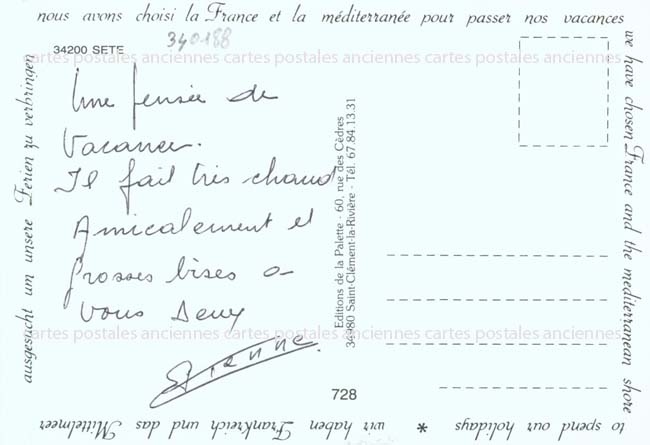 nous avons choisi la France et la méditerranée pour passer nos vacances
we have chosen France and the mediterranean shore
to spend our holidays * wir haben Frankreich und das Mittelmeer
ausgesucht um unsere Ferien zu verbringen
34200 SETE
340188
cartes postales anciennes cartes postales anciennes cartes postales anciennes
Une pensée de
Vacances.
Il fait très chaud
Amicalement et
grosses bises a
vous deux
Editions de la Palette - 60, rue des Cèdres
34980 Saint-Clément-la-Rivière - Tél. 67.84.13.31
cartes postales anciennes cartes postales anciennes cartes postales anciennes
728